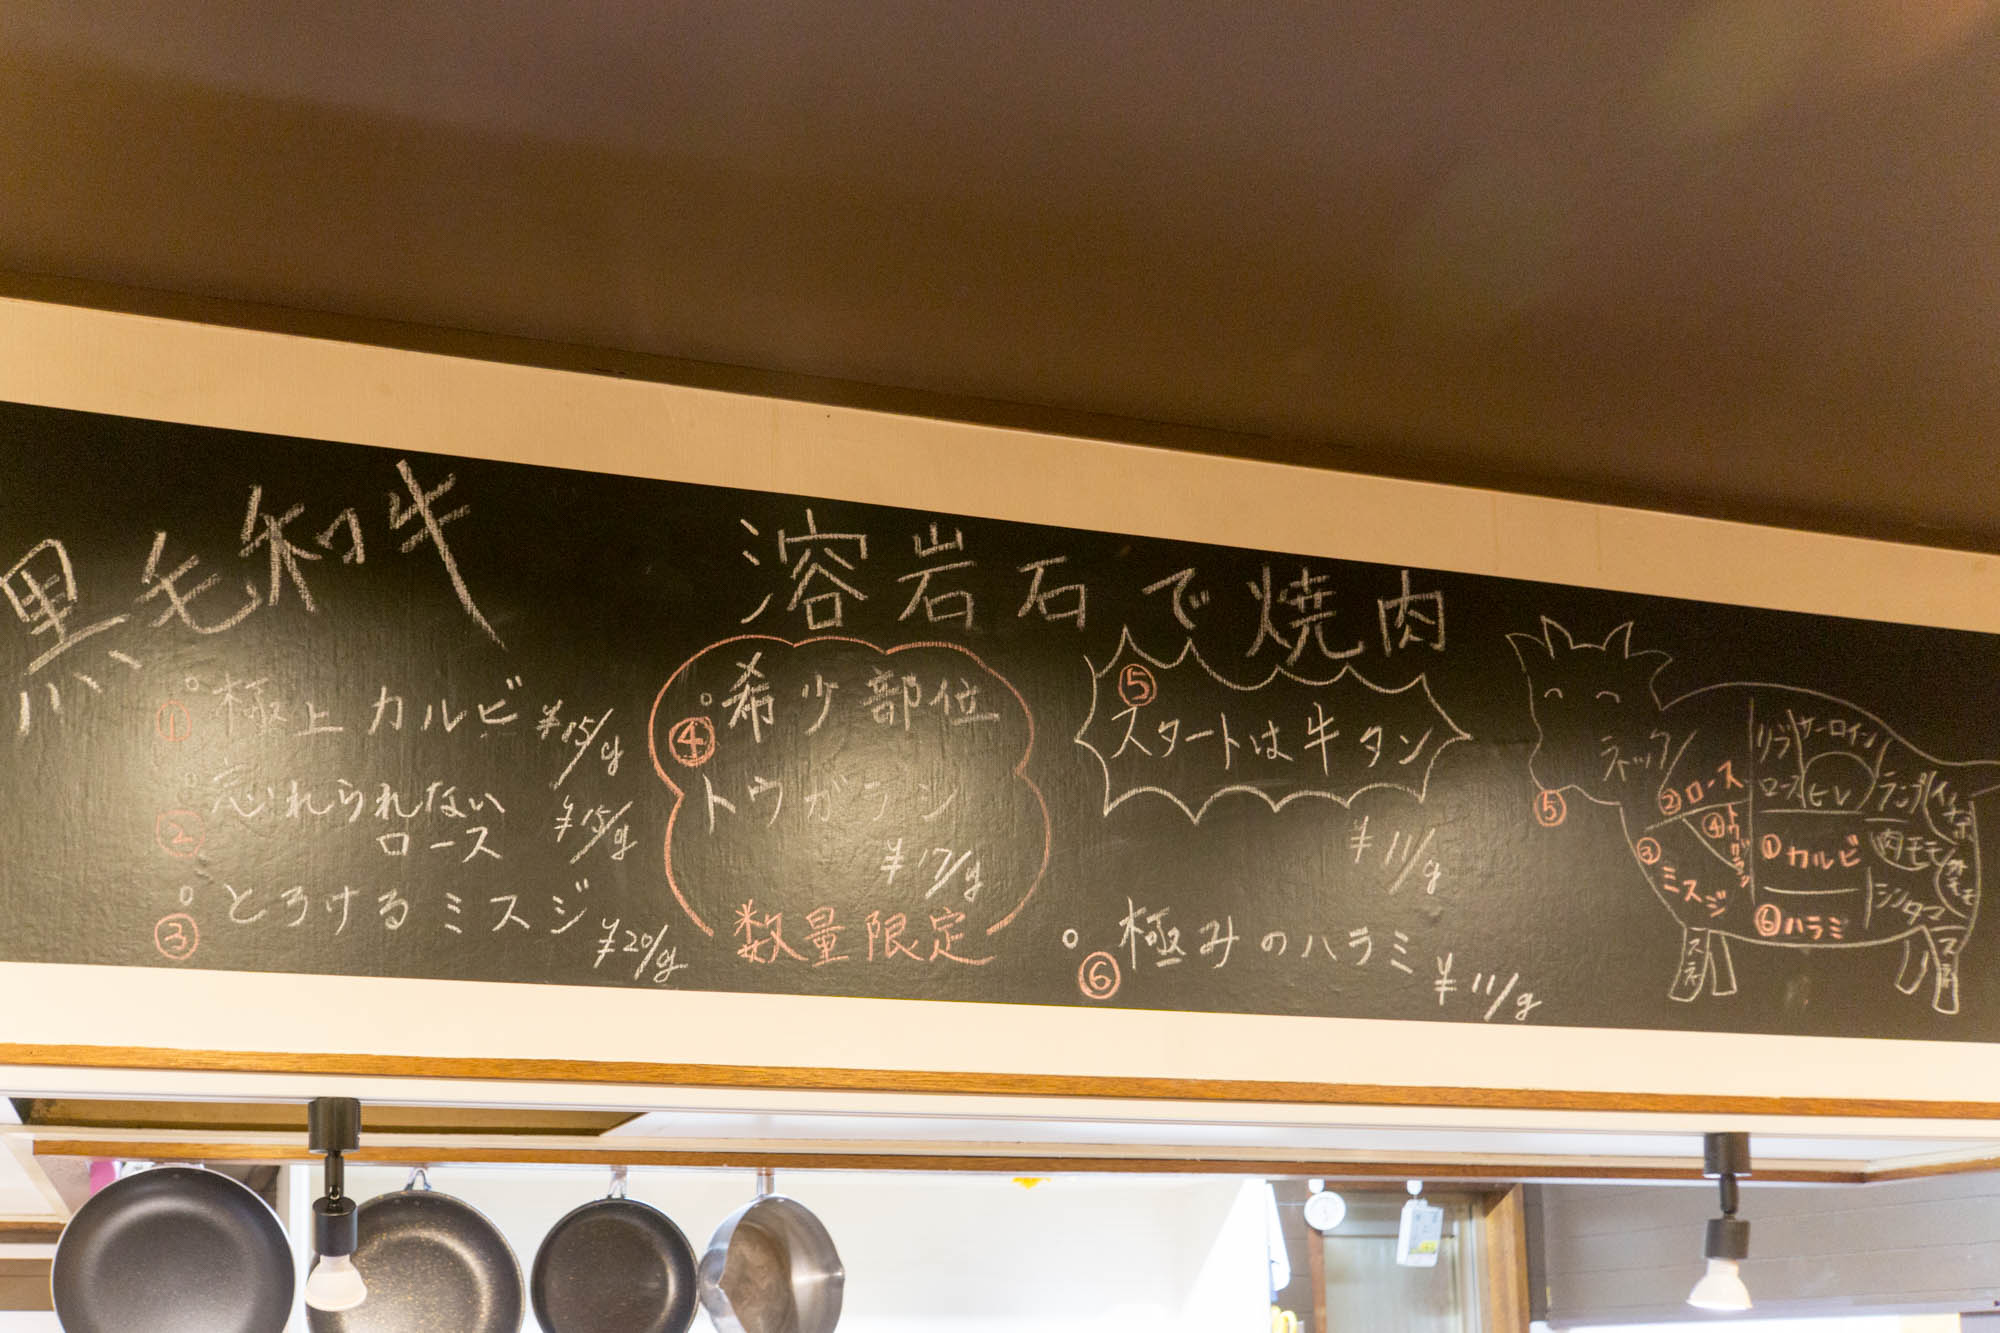 黒毛和牛
溶岩石で焼肉
① 極上カルビ ¥15/g
② 忘れられない
ロース ¥15/g
③ とろけるミスジ ¥20/g
④ 希少部位
トウガラシ
¥17/g
数量限定
⑤
スタートは牛タン
¥11/g
⑥ 極みのハラミ ¥11/g
⑤
ネック
②ロース
④トウガラシ
③
ミスジ
リブ
ロース
サーロイン
ヒレ
ランプ
イチボ
①カルビ
肉モモ
シンタマ
⑥ハラミ
スネ
スネ